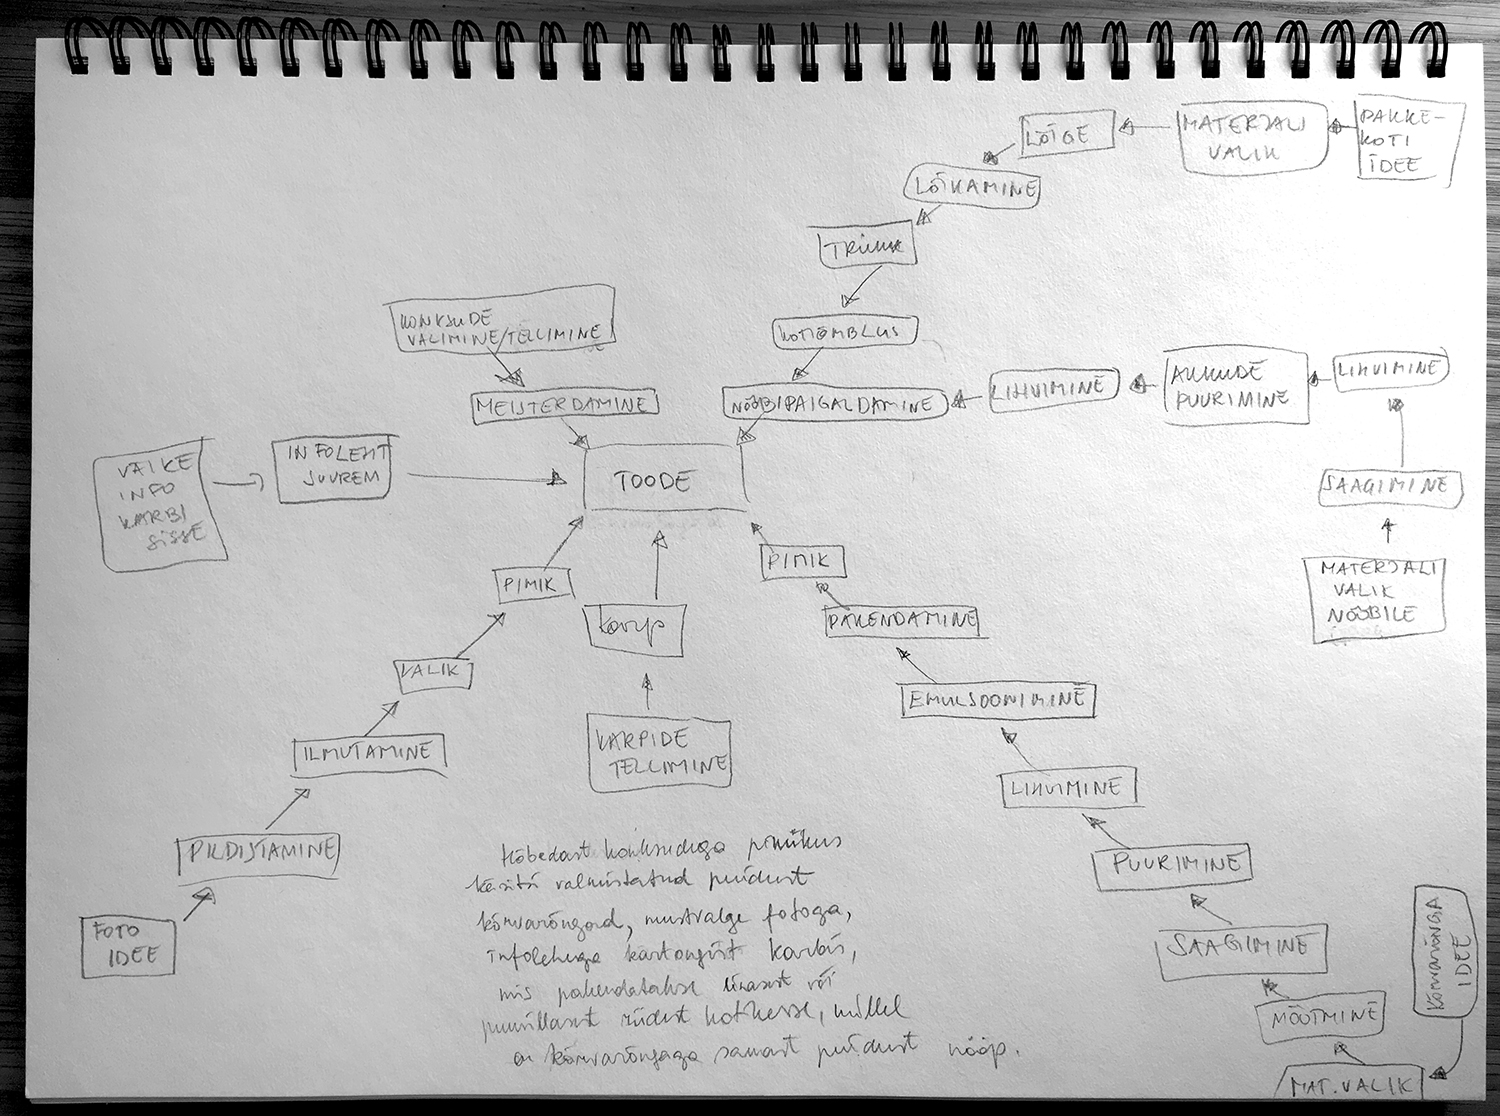 PAKKE-
KOTI
IDEE
MATERJALI
VALIK
LÕIGE
LÕIKAMINE
TRÜKK
KOTIÕMBLUS
NÖÖBIPAIGALDAMINE
LIHVIMINE
AUKUDE
PUURIMINE
LIHVIMINE
SAAGIMINE
MATERJALI
VALIK
NÖÖBILE
KONKSUDE
VALIMINE/TELLIMINE
MEISTERDAMINE
VÄIKE
INFO
KARBI
SISSE
INFOLEHT
SUUREM
TOODE
PIMIK
VALIK
ILMUTAMINE
PILDISTAMINE
FOTO
IDEE
KARP
KARPIDE
TELLIMINE
PIMIK
PAKENDAMINE
EMULSOONIMINE
LIHVIMINE
PUURIMINE
SAAGIMINE
MÕÕTMINE
MAT.VALIK
KÕRVARÕNGA
IDEE
Hõbedast konksudega pimikus
käsitsi valmistatud puidust
kõrvarõngad, mustvalge fotoga,
infolehega kartongist karbis,
mis pakendatakse linasest või
puuvillasest riidest kotikesse, millel
on kõrvarõngaga samast puidust nööp.